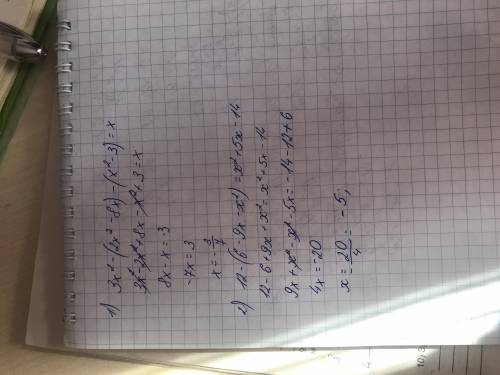 1) 3x² - (2x² - 8x) - (x² - 3) = x
3x² - 2x² + 8x - x² + 3 = x
8x - x = 3
-7x = 3
x = - 3/7
2) 12 - (6 - 9x - x²) = x² + 5x - 14
12 - 6 + 9x + x² = x² + 5x - 14
9x + x² - x² - 5x = -14 - 12 + 6
4x = -20
x = 20/4 = -5;
10) 3